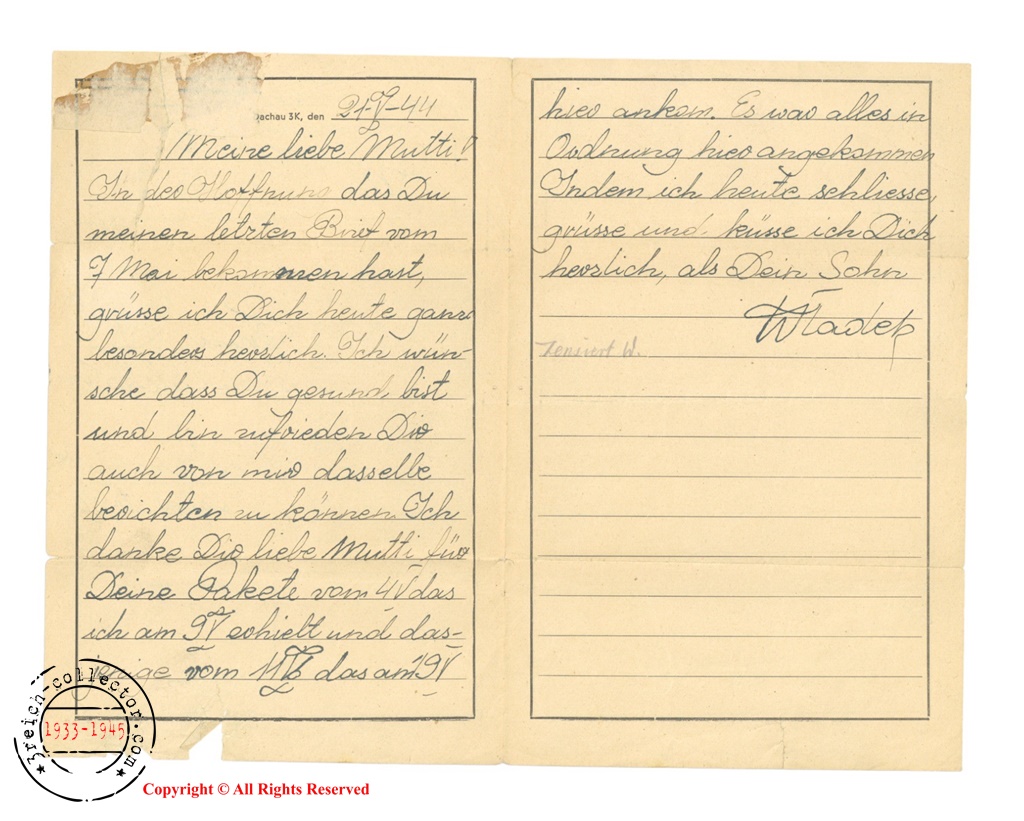 Dachau 3K, den 21-V-44
Meine liebe Mutti!
In der Hoffnung das Du
meinen letzten Brief vom
7 Mai bekommen hast,
grüsse ich Dich heute ganz
besonders herzlich. Ich wün-
sche dass Du gesund bist
und bin zufrieden Dir
auch von mir dasselbe
berichten zu können. Ich
danke Dir liebe Mutti für
Deine Pakete vom 4V das
ich am 9V erhielt und das-
jenige vom 11V das am 19V
hier ankom. Es war alles in
Ordnung hier angekommen
Indem ich heute schliesse,
grüsse und küsse ich Dich
herzlich, als Dein Sohn
Władek
Zensiert W.
3reich-collector.com
1933-1945
Copyright © All Rights Reserved